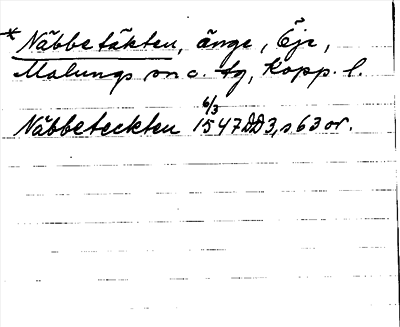 * Näbbetäkten, änge, Öje,
Malungs sn o. tg, Kopp. l.
6/3
Näbbeteckten 1547 DD3, s 63 or.